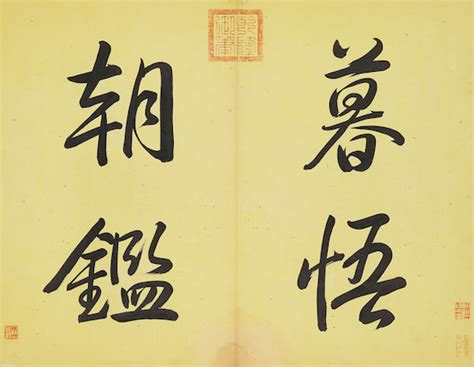 暮悟
朝鑑